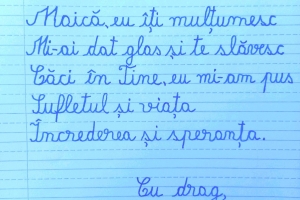 Maică, eu îți mulțumesc
Mi-ai dat glas și te slăvesc
Căci în Tine, eu mi-am pus
Sufletul și viața
Încrederea și speranța.
Cu drag,